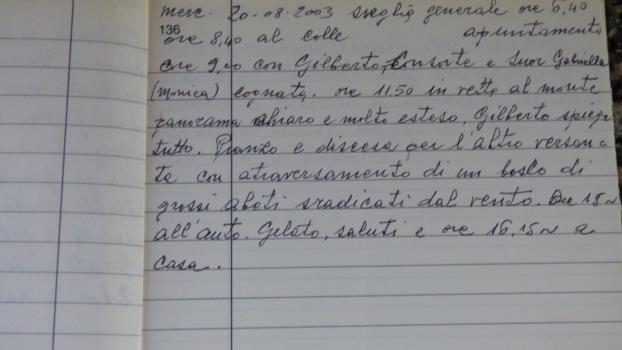 merc. 20-08-2003 sveglia generale ore 6,40
136
ore 8,40 al colle apuntamento
ore 9,00 con Gilberto, Consorte e Suor Gabriella
(monica) cognata. ore 11.50 in vetta al monte
panorama chiaro e molto esteso, Gilberto spiega
tutto. Pranzo e discesa per l'altro versan
te con atraversamento di un bosco di
grossi abeti sradicati dal vento. Ore 15~
all'auto. Gelato, saluti e ore 16,15~ a
casa.